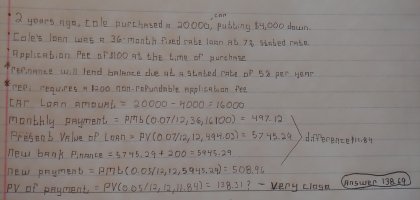 car
2 years ago, Cole purchased a 20000, putting $4,000 down.
Cole's loan was a 36-month fixed rate loan at 7% stated rate
Application fee of $100 at the time of purchase
refinance will lend balance due at a stated rate of 5% per year
refi requires a $200 non-refundable application fee
Car Loan amount = 20000 - 4000 = 16000
monthly payment = PMT(0.07/12,36,16100) = 497.12
Present Value of Loan = PV(0.07/12,12,494.03) = 5745.29
difference 11.84
new bank finance = 5745.29 + 200 = 5945.29
new payment = PMT(0.05/12,12,5945.29) = 508.96
PV of payment = PV(0.05/12,12,11.84) = 138.31? - very close
Answer 138.69